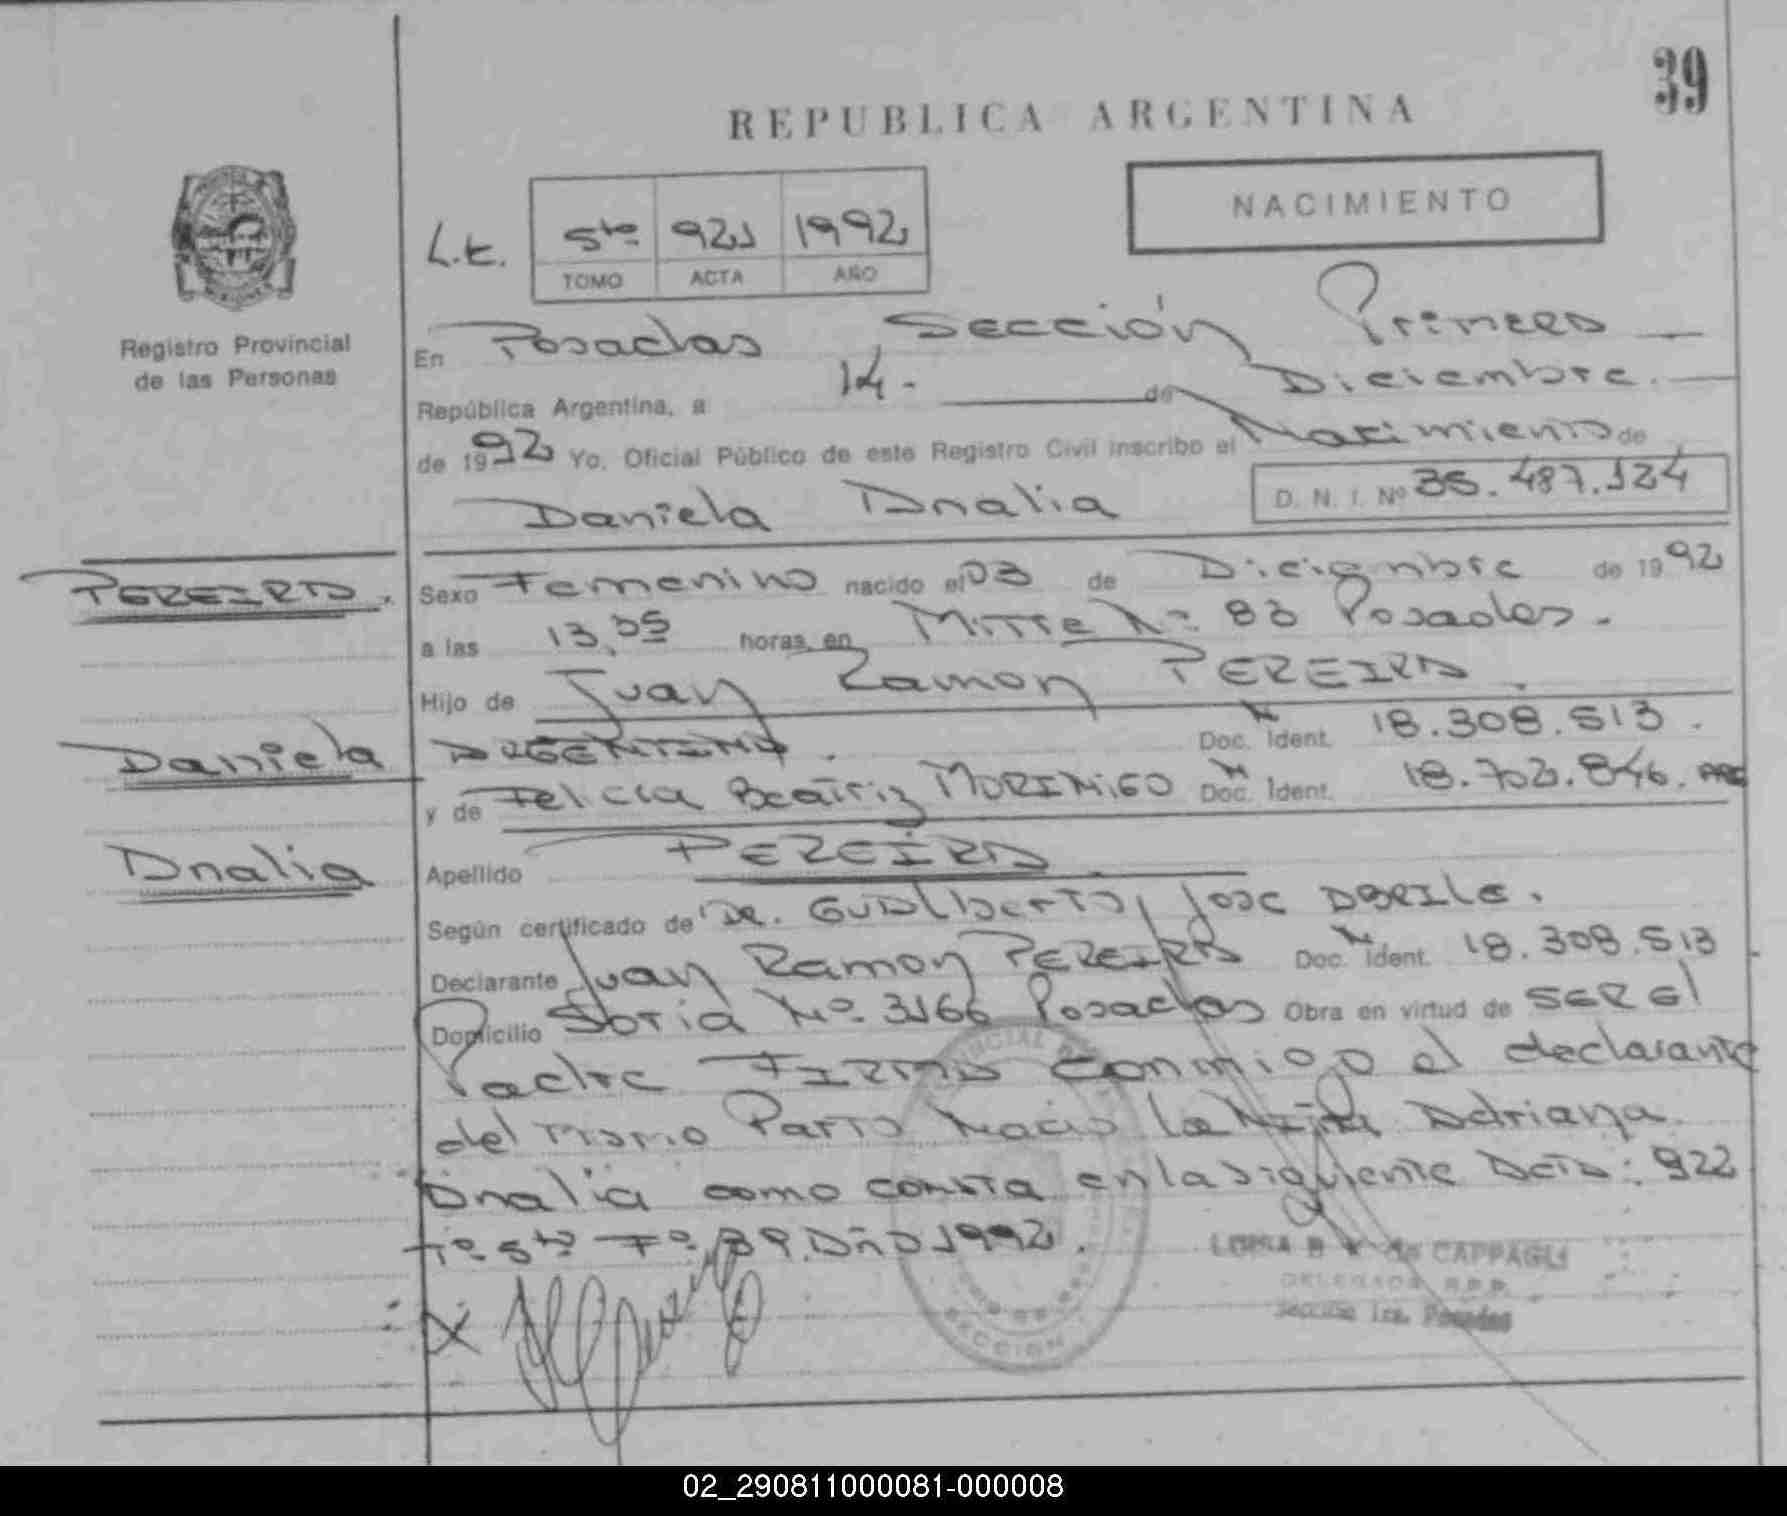 39
REPUBLICA ARGENTINA
NACIMIENTO
L.E. 5to 921 1992
TOMO ACTA AÑO
Registro Provincial
de las Personas
En Posadas Sección Primera
República Argentina, a 14 - de Diciembre.
de 1992 Yo, Oficial Público de este Registro Civil inscribo el Nacimiento de
Daniela Analia D. N. I. Nº 36.487.124
PEREIRA. Sexo Femenino nacido el 03 de Diciembre de 1992
a las 13,35 horas, en Mitre Nº 83 Posadas.
Hijo de Juan Ramon PEREIRA.
Daniela ARGENTINA. Doc. Ident. 18.308.513.
y de Felicia Beatriz MORINIGO Doc. Ident. 18.702.846. ARG
Analia Apellido PEREIRA
Según certificado de Dr. Gualberto José ABRILE.
Declarante Juan Ramon PEREIRA Doc. Ident. 18.308.513
Domicilio Soria Nº 3166 Posadas Obra en virtud de SER El
Padre FIRMA conmigo el declarante
del mismo Parto Nacio la Niña Adriana
Analia como consta en la siguiente Acta: 922
Tº 5to Fº 39. Año 1992.
CAPPAGLI
DELEGADA R.P.P.
Sección 1ra. Posadas
SECCION
X
02_290811000081-000008